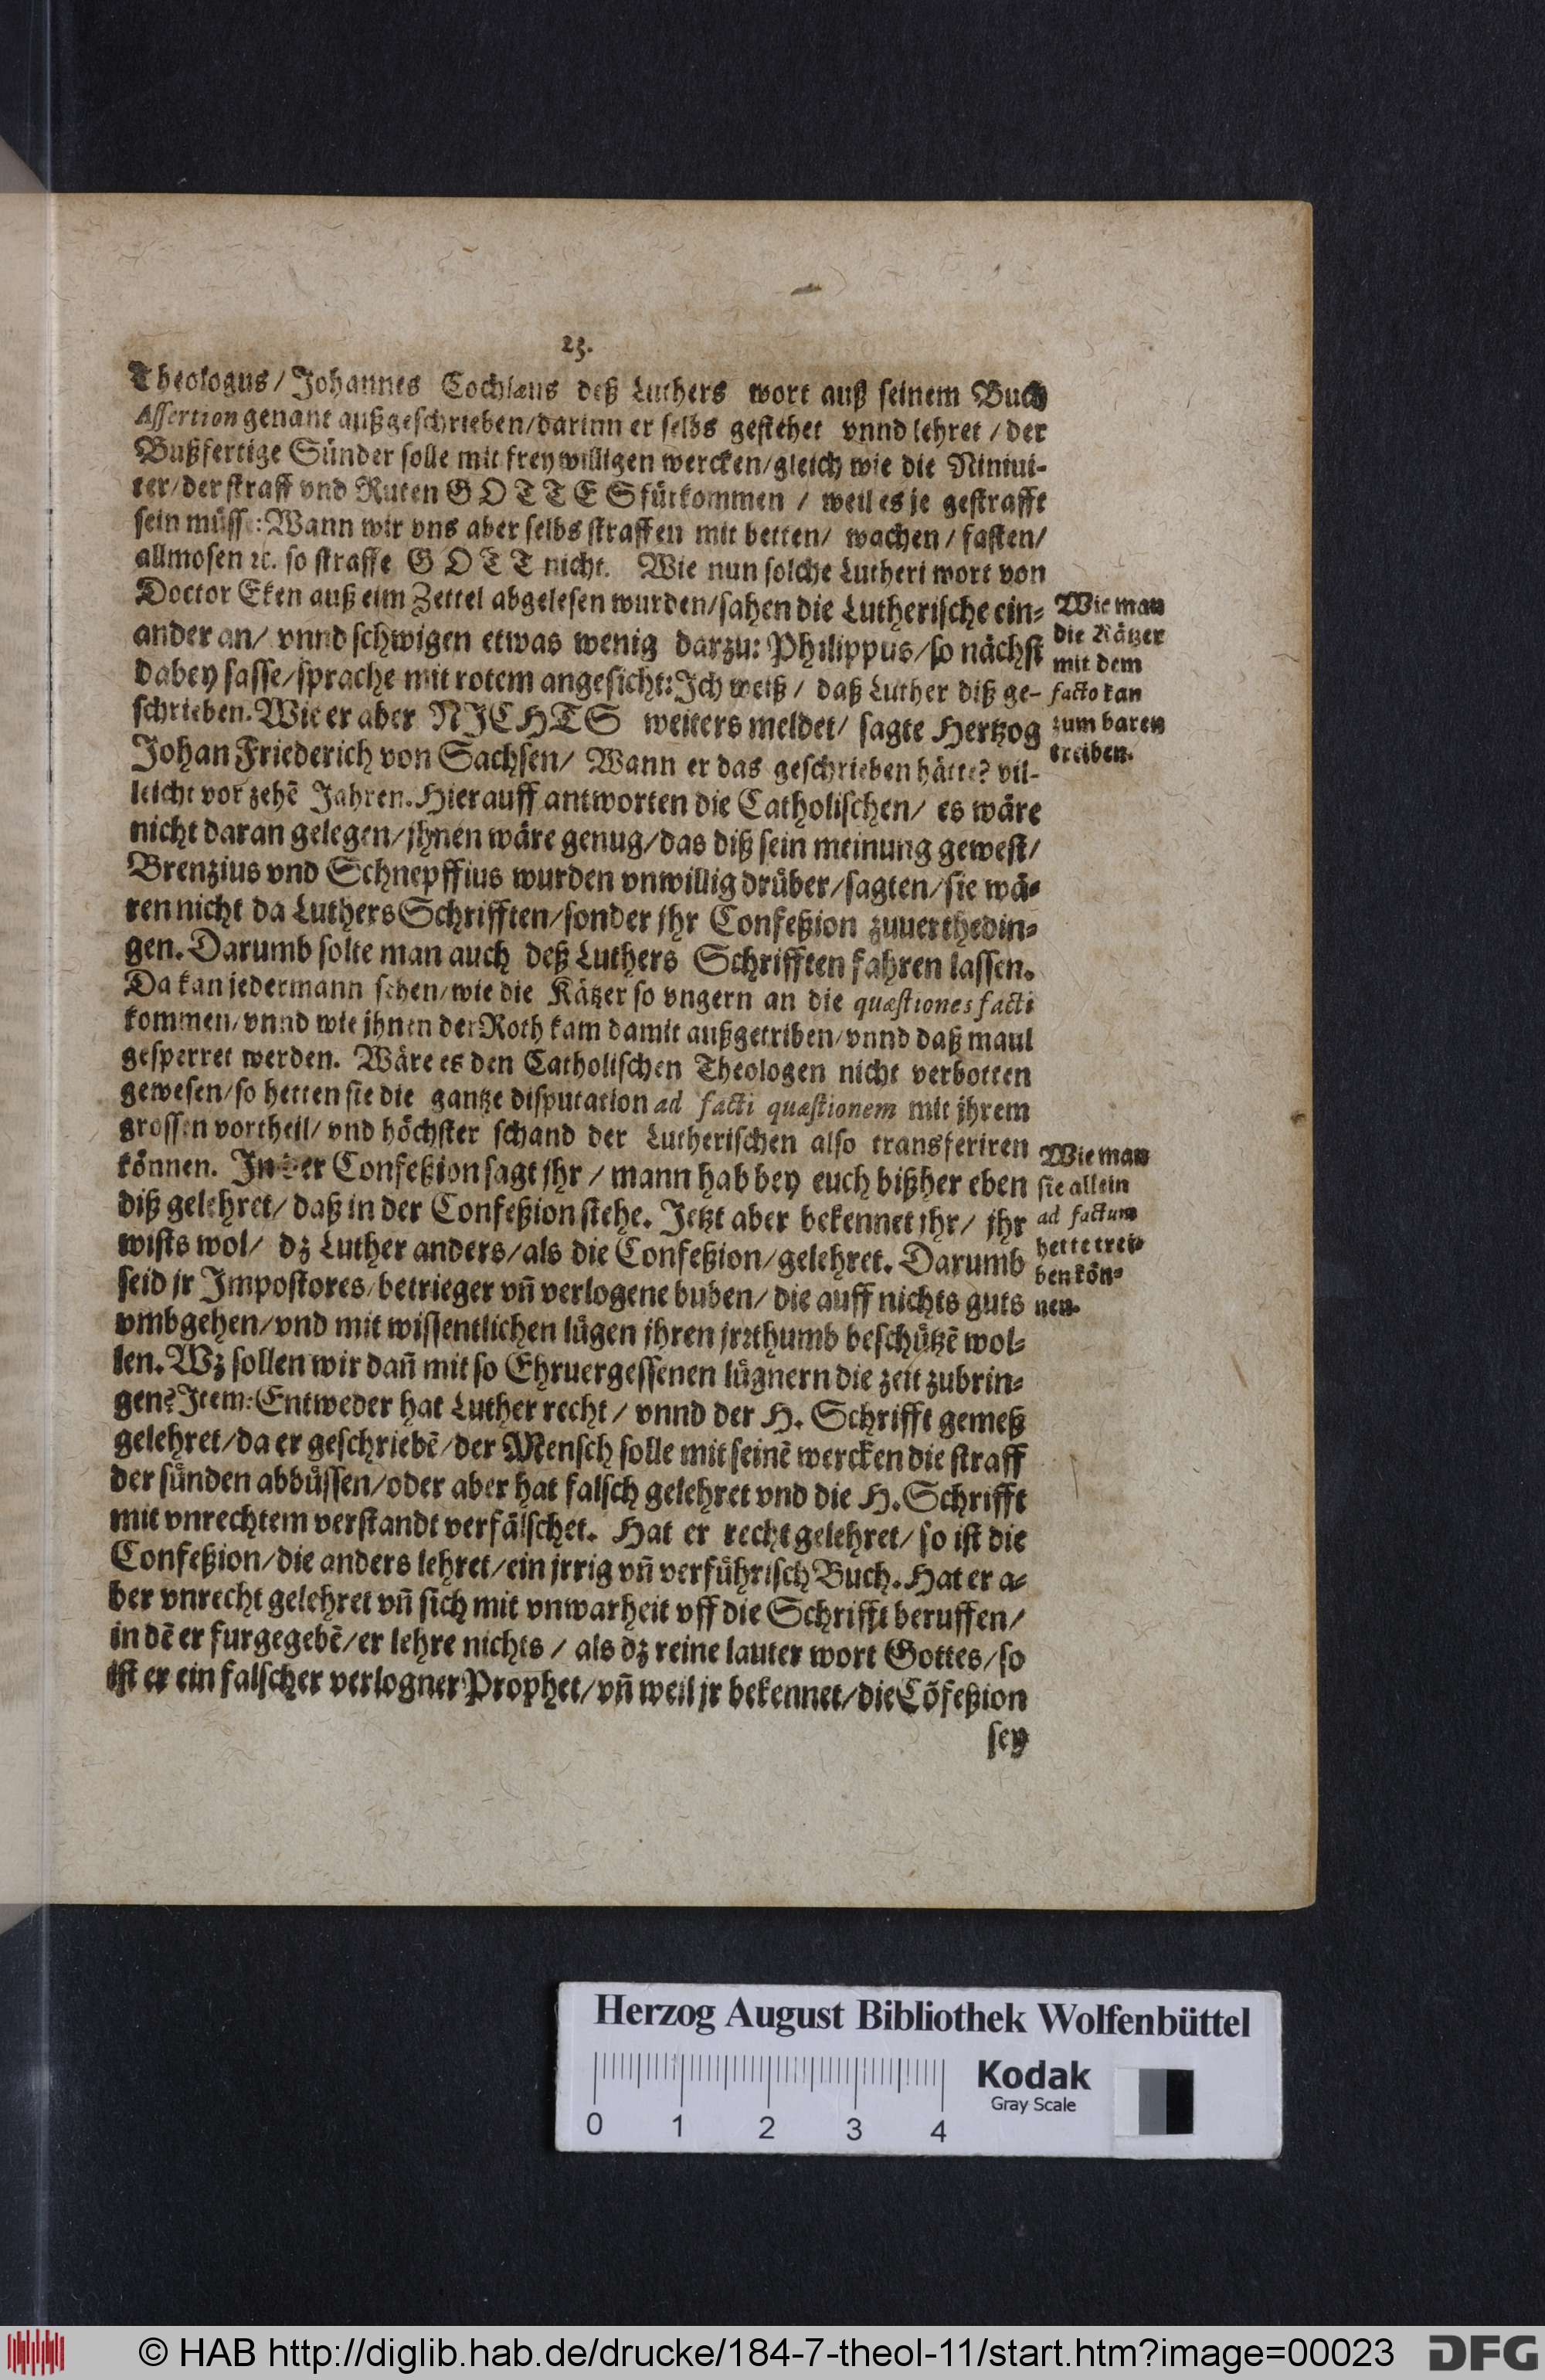 23.
Theologus/ Johannes Cochlæus deß Luthers wort auß seinem Buch
Assertion genant außgeschrieben/darinn er selbs gestehet vnnd lehret / der
Bußfertige Sünder solle mit freywilligen wercken/gleich wie die Niniui-
ter/der straff vnd Ruten GOTTES fürkommen / weil es je gestrafft
sein müsse: Wann wir vns aber selbs straffen mit betten/ wachen / fasten/
allmosen ꝛc. so straffe GOTT nicht. Wie nun solche Lutheri wort von
Doctor Eken auß eim Zettel abgelesen wurden/sahen die Lutherische ein-
ander an/ vnnd schwigen etwas wenig darzu: Philippus/so nächst
dabey sasse/sprache mit rotem angesicht: Ich weiß / daß Luther diß ge-
schrieben. Wie er aber NICHTS weiters meldet/ sagte Hertzog
Johan Friederich von Sachsen/ Wann er das geschrieben hätte? vil-
leicht vor zehẽ Jahren. Hierauff antworten die Catholischen/ es wäre
nicht daran gelegen/jhnen wäre genug/das diß sein meinung gewest/
Brenzius vnd Schnepffius wurden vnwillig drüber/sagten/sie wä-
ren nicht da Luthers Schrifften/sonder jhr Confeßion zuuerthedin-
gen. Darumb solte man auch deß Luthers Schrifften fahren lassen.
Da kan jedermann sehen/wie die Kätzer so vngern an die quæstiones facti
kommen/vnnd wie jhnen der Roth kam damit außgetriben/vnnd daß maul
gesperret werden. Wäre es den Catholischen Theologen nicht verbotten
gewesen/so hetten sie die gantze disputation ad facti quæstionem mit jhrem
grossen vortheil/ vnd höchster schand der Lutherischen also transferiren
können. In der Confeßion sagt jhr / mann hab bey euch bißher eben
diß gelehret/ daß in der Confeßion stehe. Jetzt aber bekennet jhr/ jhr
wists wol/ dz Luther anders/als die Confeßion/gelehret. Darumb
seid jr Impostores/betrieger vñ verlogene buben/ die auff nichts guts
vmbgehen/vnd mit wissentlichen lügen jhren jrrthumb beschützẽ wol-
len. Wz sollen wir dañ mit so Ehruergessenen lügnern die zeit zubrin-
gen? Item: Entweder hat Luther recht / vnnd der H. Schrifft gemeß
gelehret/da er geschriebẽ/der Mensch solle mit seinẽ wercken die straff
der sünden abbüssen/oder aber hat falsch gelehret vnd die H. Schrifft
mit vnrechtem verstandt verfälschet. Hat er recht gelehret/ so ist die
Confeßion/die anders lehret/ein jrrig vñ verführisch Buch. Hat er a-
ber vnrecht gelehret vñ sich mit vnwarheit vff die Schrifft beruffen/
in dẽ er furgegebẽ/er lehre nichts / als dz reine lauter wort Gottes/so
ist er ein falscher verlogner Prophet/vñ weil jr bekennet/die Cõfeßion
sey
Wie man
die Kätzer
mit dem
facto kan
zum baren
treiben.
Wie man
sie allein
ad factum
hette trei-
ben kön-
nen.
Herzog August Bibliothek Wolfenbüttel
Kodak
Gray Scale
0 1 2 3 4
© HAB http://diglib.hab.de/drucke/184-7-theol-11/start.htm?image=00023
DFG